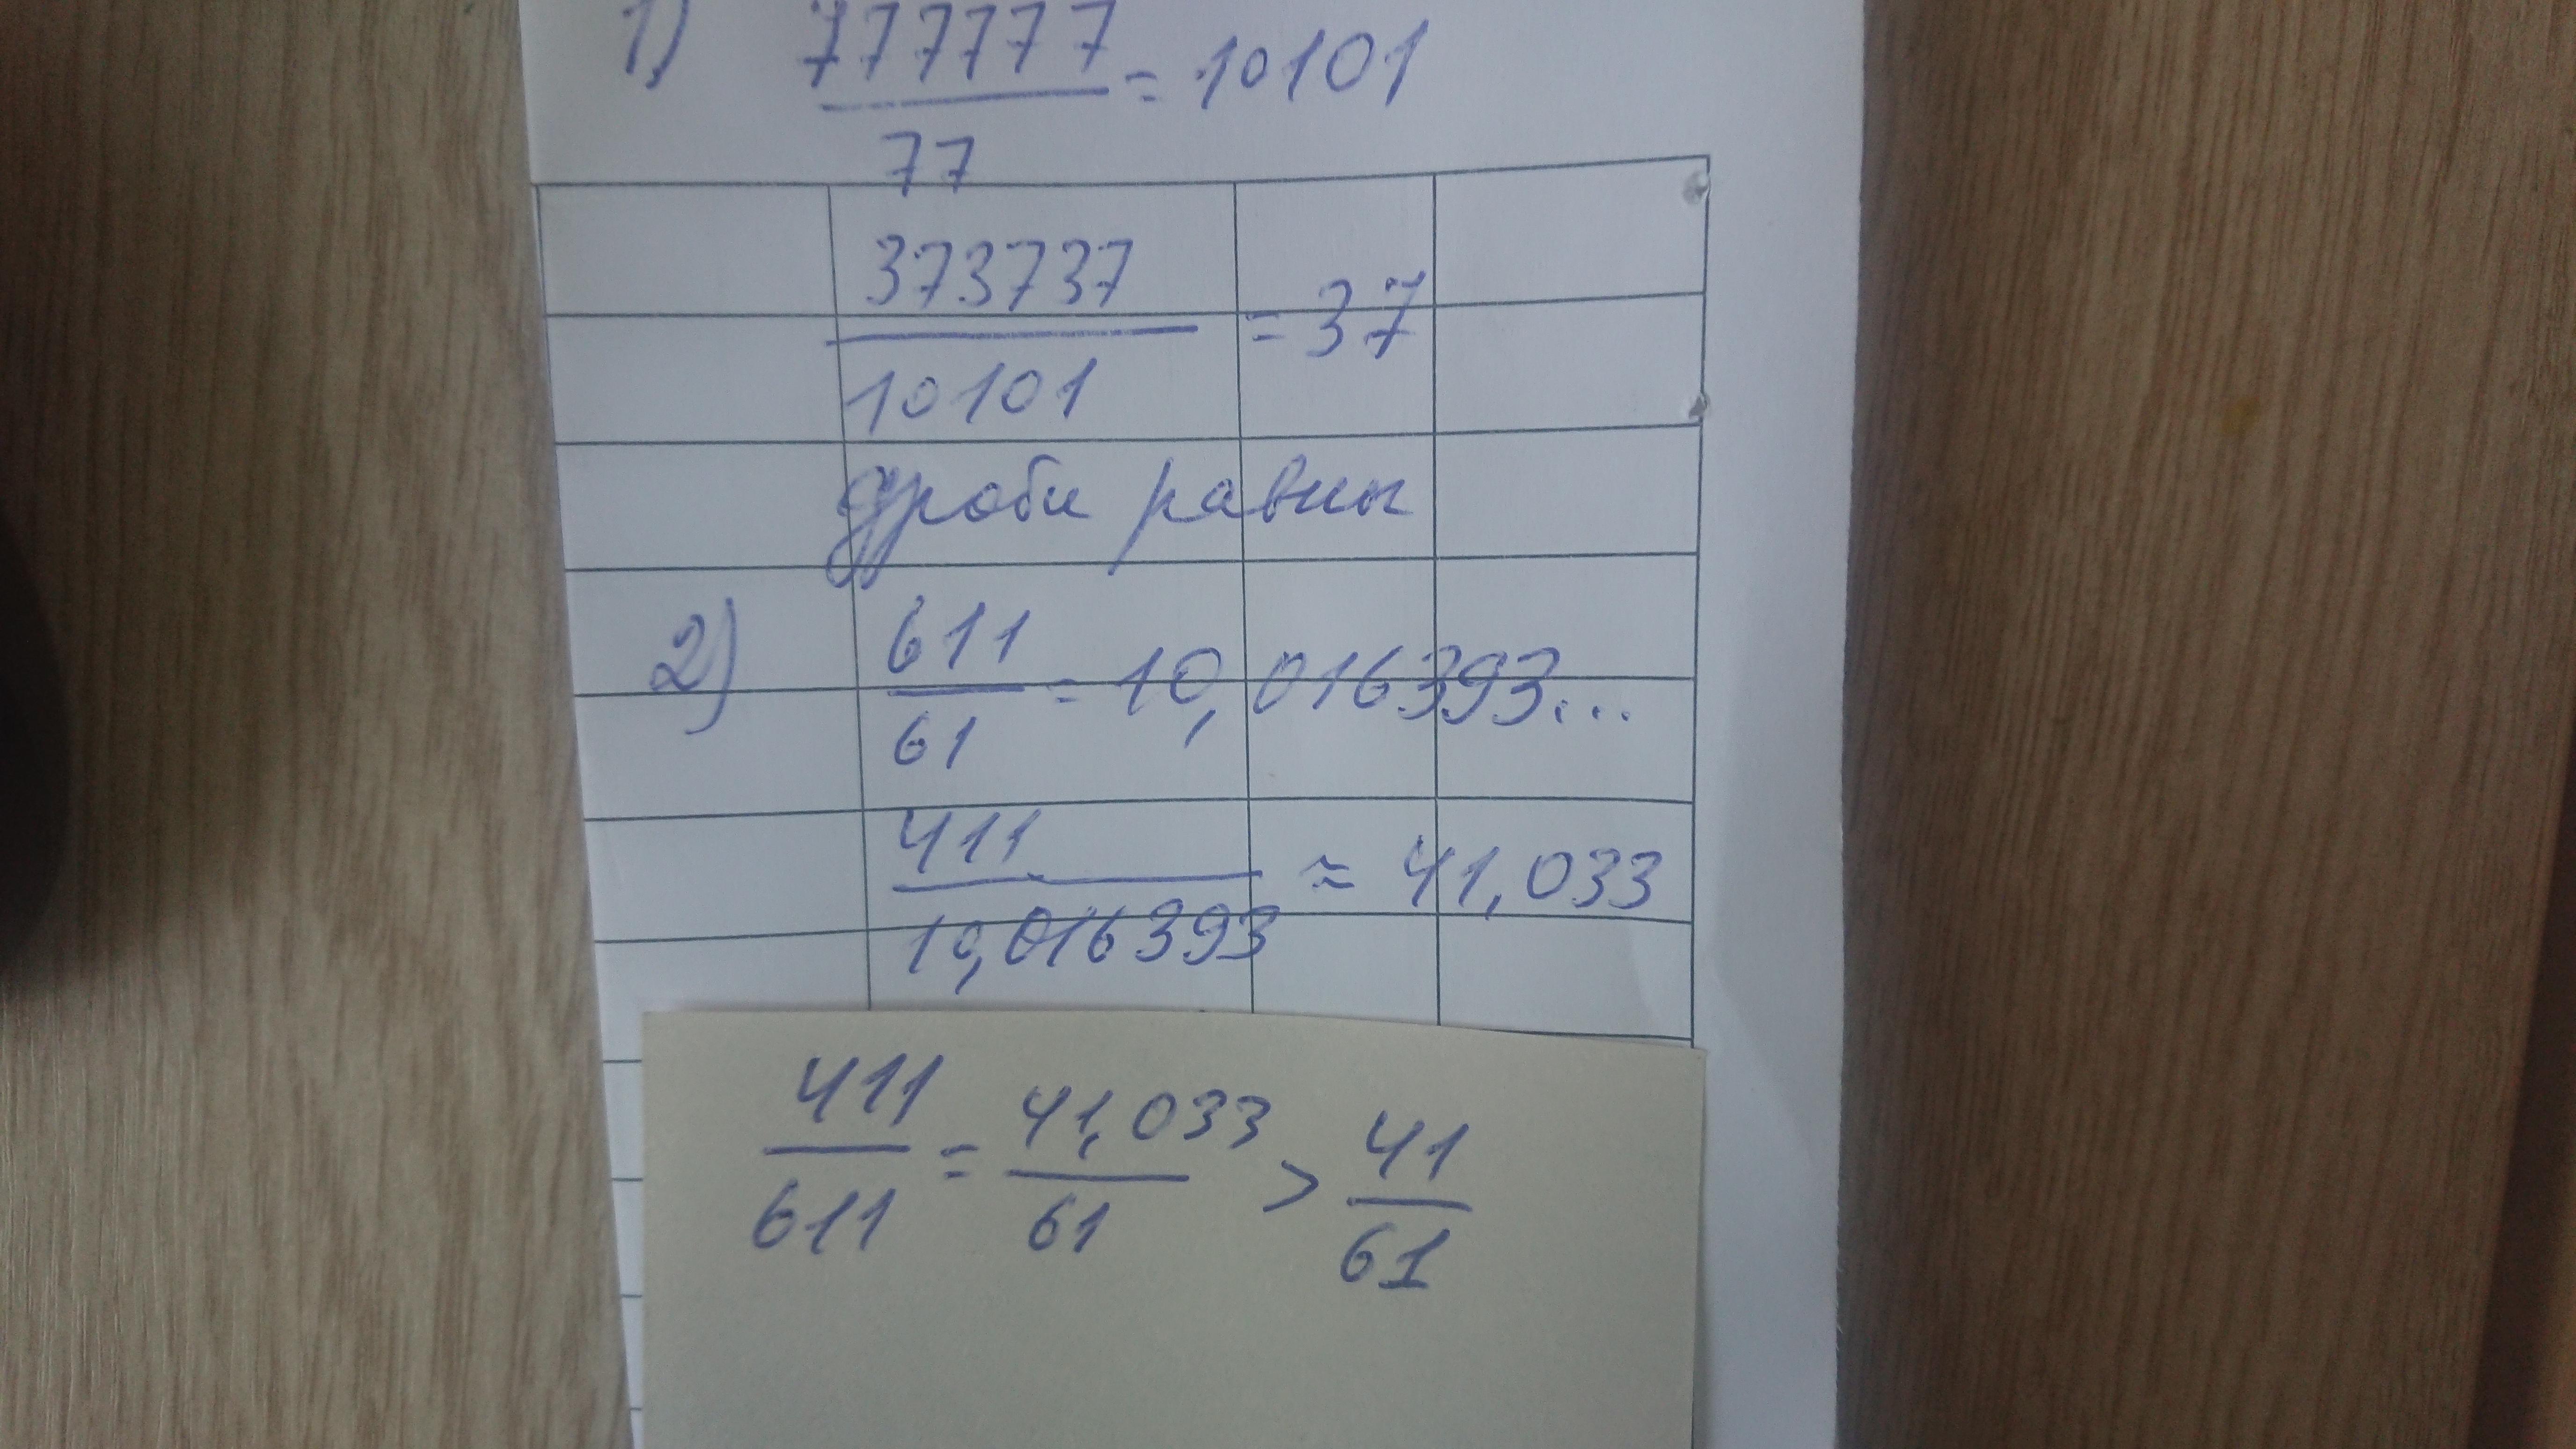 1) 777777/77 = 10101
373737/10101 = 37
дроби равны
2) 611/61 = 10,016393...
411/10,016393 ≈ 41,033
411/611 = 41,033/61 > 41/61